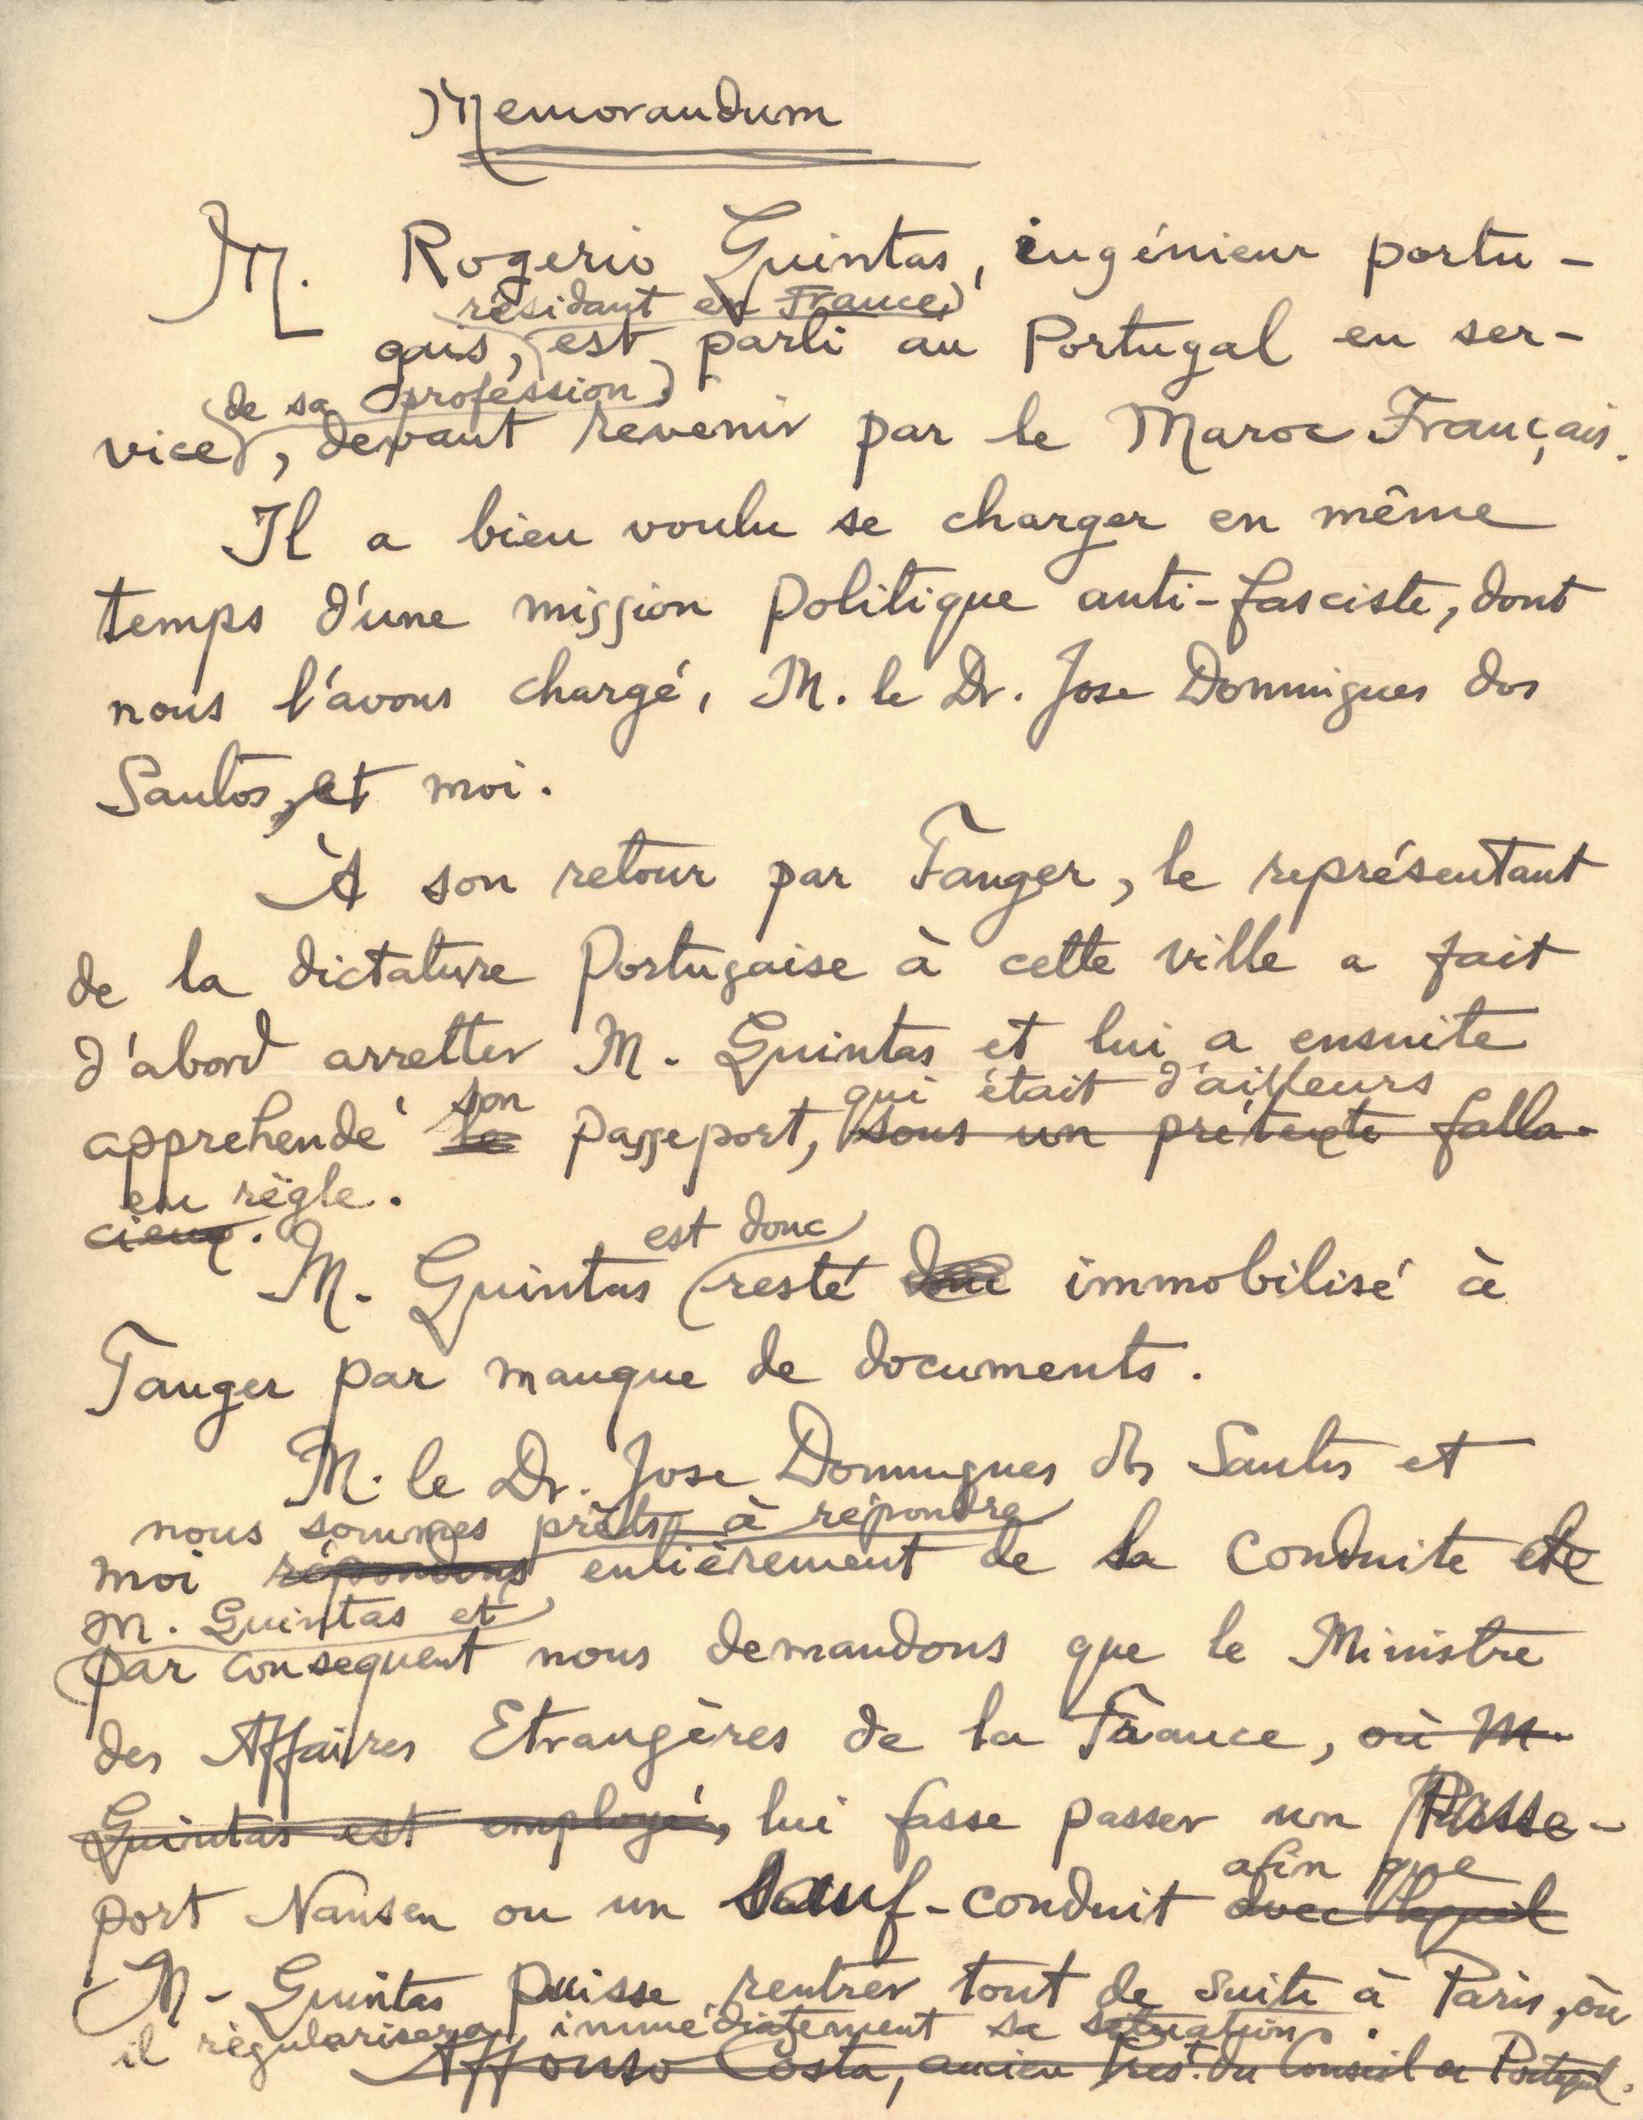 Memorandum
M. Rogerio Guintas, ingénieur portu-
résidant en France,
gais, est parti au Portugal en ser-
de sa profession
vice, devant revenir par le Maroc Français.
Il a bien voulu se charger en même
temps d'une mission politique anti-fasciste, dont
nous l'avons chargé, M. le Dr. Jose Domingues dos
Santos, et moi.
À son retour par Tanger, le représentant
de la dictature Portugaise à cette ville a fait
d'abord arretter M. Guintas et lui a ensuite
son qui était d'ailleurs
apprehendé le passeport, sous un prétexte falla-
en règle.
cieux.
est donc
M. Guintas resté donc immobilisé à
Tanger par manque de documents.
M. le Dr. Jose Domingues dos Santos et
nous sommes prêts à répondre
moi répondons entièrement de la conduite de
M. Guintas et
par consequent nous demandons que le Ministre
des Affaires Etrangères de la France, où M.
Guintas est employé, lui fasse passer un Passe-
afin que
port Nansen ou un Sauf-conduit avec lequel
M. Guintas puisse rentrer tout de suite à Paris, où
il règularisera immédiatement sa situation.
Affonso Costa, ancien Pres. du Conseil de Portugal.